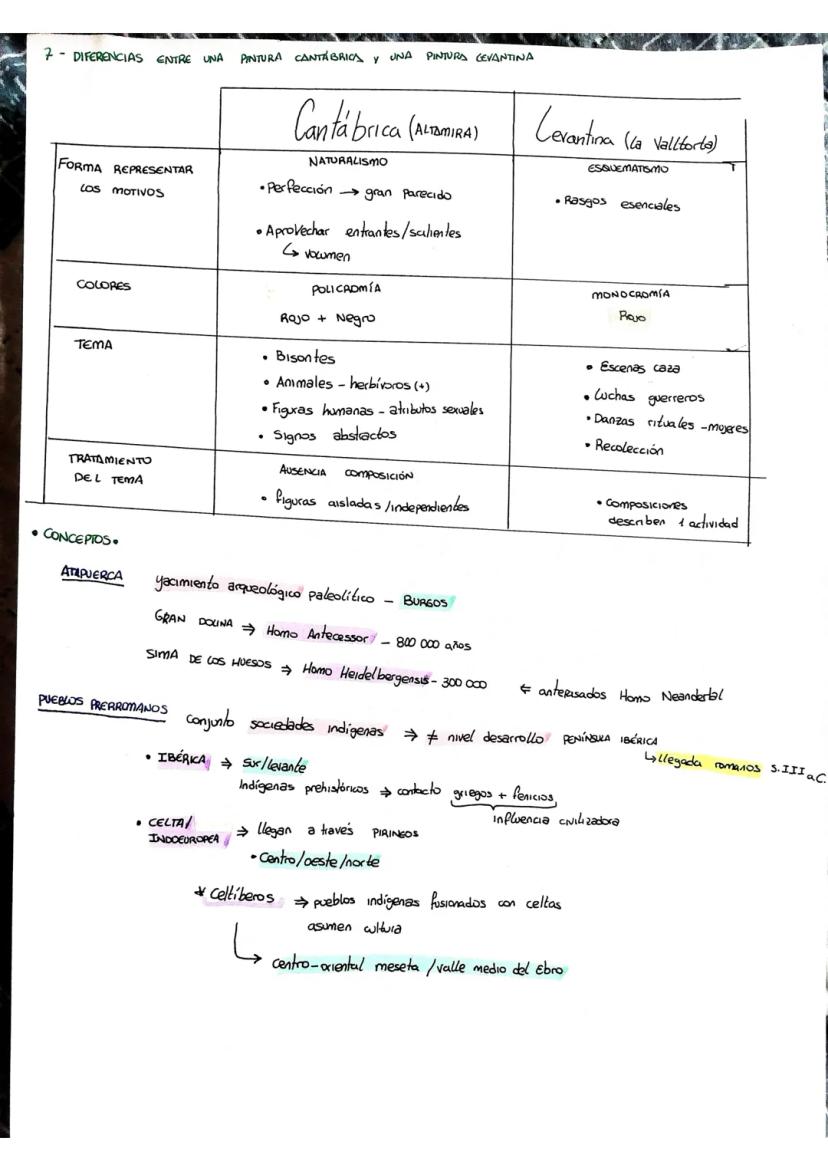 7 - DIFERENCIAS ENTRE UNA PINTURA CANTÁBRICA y UNA PINTURA LEVANTINA
Cantábrica (ALTAMIRA)
Levantina (La Valltorta)
FORMA REPRESENTAR
LOS MOTIVOS
NATURALISMO
• Perfección → gran parecido
• Aprovechar entrantes/salientes
↳ volumen
ESQUEMATISMO
• Rasgos esenciales
COLORES
POLICROMÍA
Rojo + Negro
MONOCROMÍA
Rojo
TEMA
• Bisontes
• Animales - herbívoros (+)
• Figuras humanas - atributos sexuales
• Signos abstractos
• Escenas caza
• Luchas guerreros
• Danzas rituales - mujeres
• Recolección
TRATAMIENTO
DEL TEMA
AUSENCIA COMPOSICIÓN
• figuras aisladas/independientes
• Composiciones
describen 1 actividad
• CONCEPTOS •
ATAPUERCA yacimiento arqueológico paleolítico - BURGOS
GRAN DOLINA ⇒ Homo Antecessor - 800 000 años
SIMA DE LOS HUESOS ⇒ Homo Heidelbergensis - 300 000 ⇐ antepasados Homo Neandertal
PUEBLOS PRERROMANOS Conjunto sociedades indígenas ⇒ ≠ nivel desarrollo PENÍNSULA IBÉRICA
↳ llegada romanos S.III a.C.
• IBÉRICA ⇒ Sur/levante
Indígenas prehistóricos ⇒ contacto griegos + fenicios
influencia civilizadora
• CELTA/
INDOEUROPEA ⇒ llegan a través PIRINEOS
• Centro/oeste/norte
* Celtíberos ⇒ pueblos indígenas fusionados con celtas
asumen cultura
→ centro-oriental meseta / valle medio del Ebro